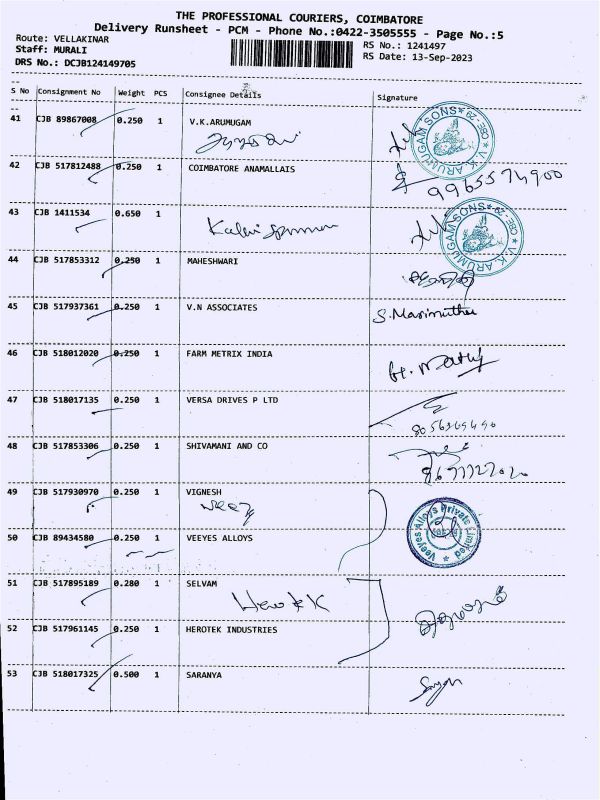 THE PROFESSIONAL COURIERS, COIMBATORE
Delivery Runsheet - PCM - Phone No.:0422-3505555 - Page No.:5
Route: VELLAKINAR
RS No.: 1241497
Staff: MURALI
RS Date: 13-Sep-2023
DRS No.: DCJB124149705
S No Consignment No Weight PCS Consignee Details Signature
41 CJB 89867008 0.250 1 V.K.ARUMUGAM
V.K.ARUMUGAM SONS * CBE-29 *
42 CJB 517812488 0.250 1 COIMBATORE ANAMALLAIS
9965574900
43 CJB 1411534 0.650 1
V.K.ARUMUGAM SONS * CBE-29 *
44 CJB 517853312 0.250 1 MAHESHWARI
45 CJB 517937361 0.250 1 V.N ASSOCIATES S. Marimuthu
46 CJB 518012020 0.250 1 FARM METRIX INDIA
47 CJB 518017135 0.250 1 VERSA DRIVES P LTD
48 CJB 517853306 0.250 1 SHIVAMANI AND CO
49 CJB 517930970 0.250 1 VIGNESH
50 CJB 89434580 0.250 1 VEEYES ALLOYS
Veeyes Alloys Private Limited
51 CJB 517895189 0.280 1 SELVAM
Herotek
52 CJB 517961145 0.250 1 HEROTEK INDUSTRIES
53 CJB 518017325 0.500 1 SARANYA